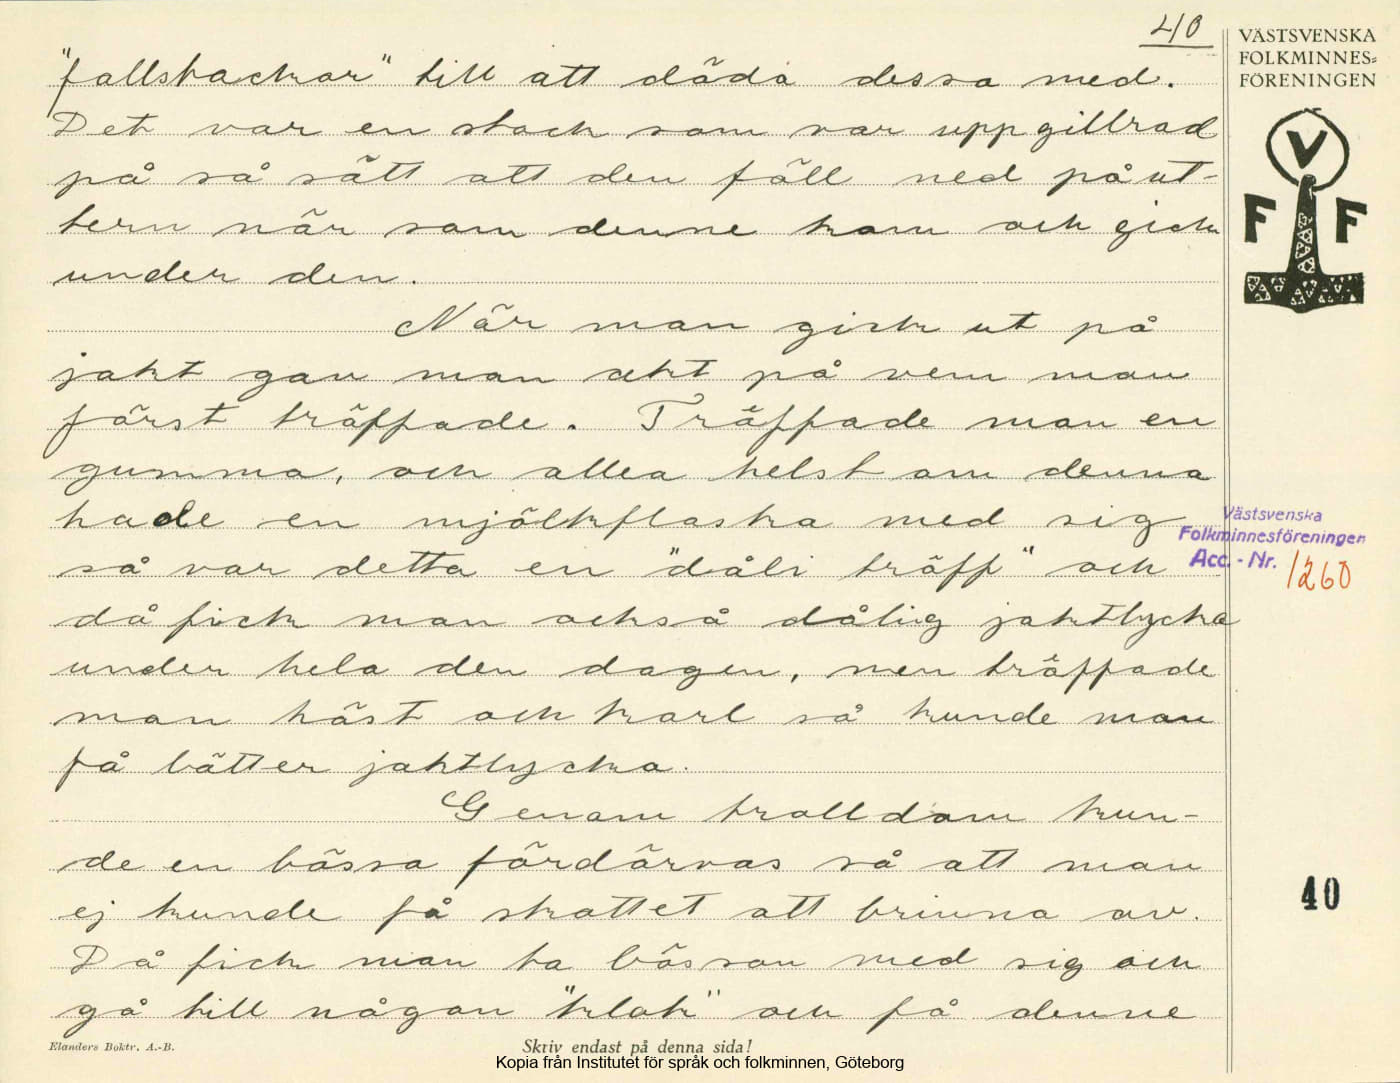 40
VÄSTSVENSKA
FOLKMINNES=
FÖRENINGEN
V
F F
"fallstockar" till att döda dessa med.
Det var en stock som var uppgillrad
på så sätt att den föll ned på ut-
tern när som denne kom och gick
under den.
När man gick ut på
jakt gav man akt på vem man
först träffade. Träffade man en
gumma, och allra helst om denna
hade en mjölkflaska med sig
så var detta en "dåli träff" och
då fick man också dålig jaktlycka
under hela den dagen, men träffade
man häst och karl så kunde man
få bätter jaktlycka.
Genom trolldom kun-
de en bössa fördärvas så att man
ej kunde få skottet att brinna av.
Då fick man ta bössan med sig och
gå till någon "klok" och få denne
Västsvenska
Folkminnesföreningen
Acc. - Nr. 1260
40
Elanders Boktr. A.-B.
Skriv endast på denna sida!
Kopia från Institutet för språk och folkminnen, Göteborg